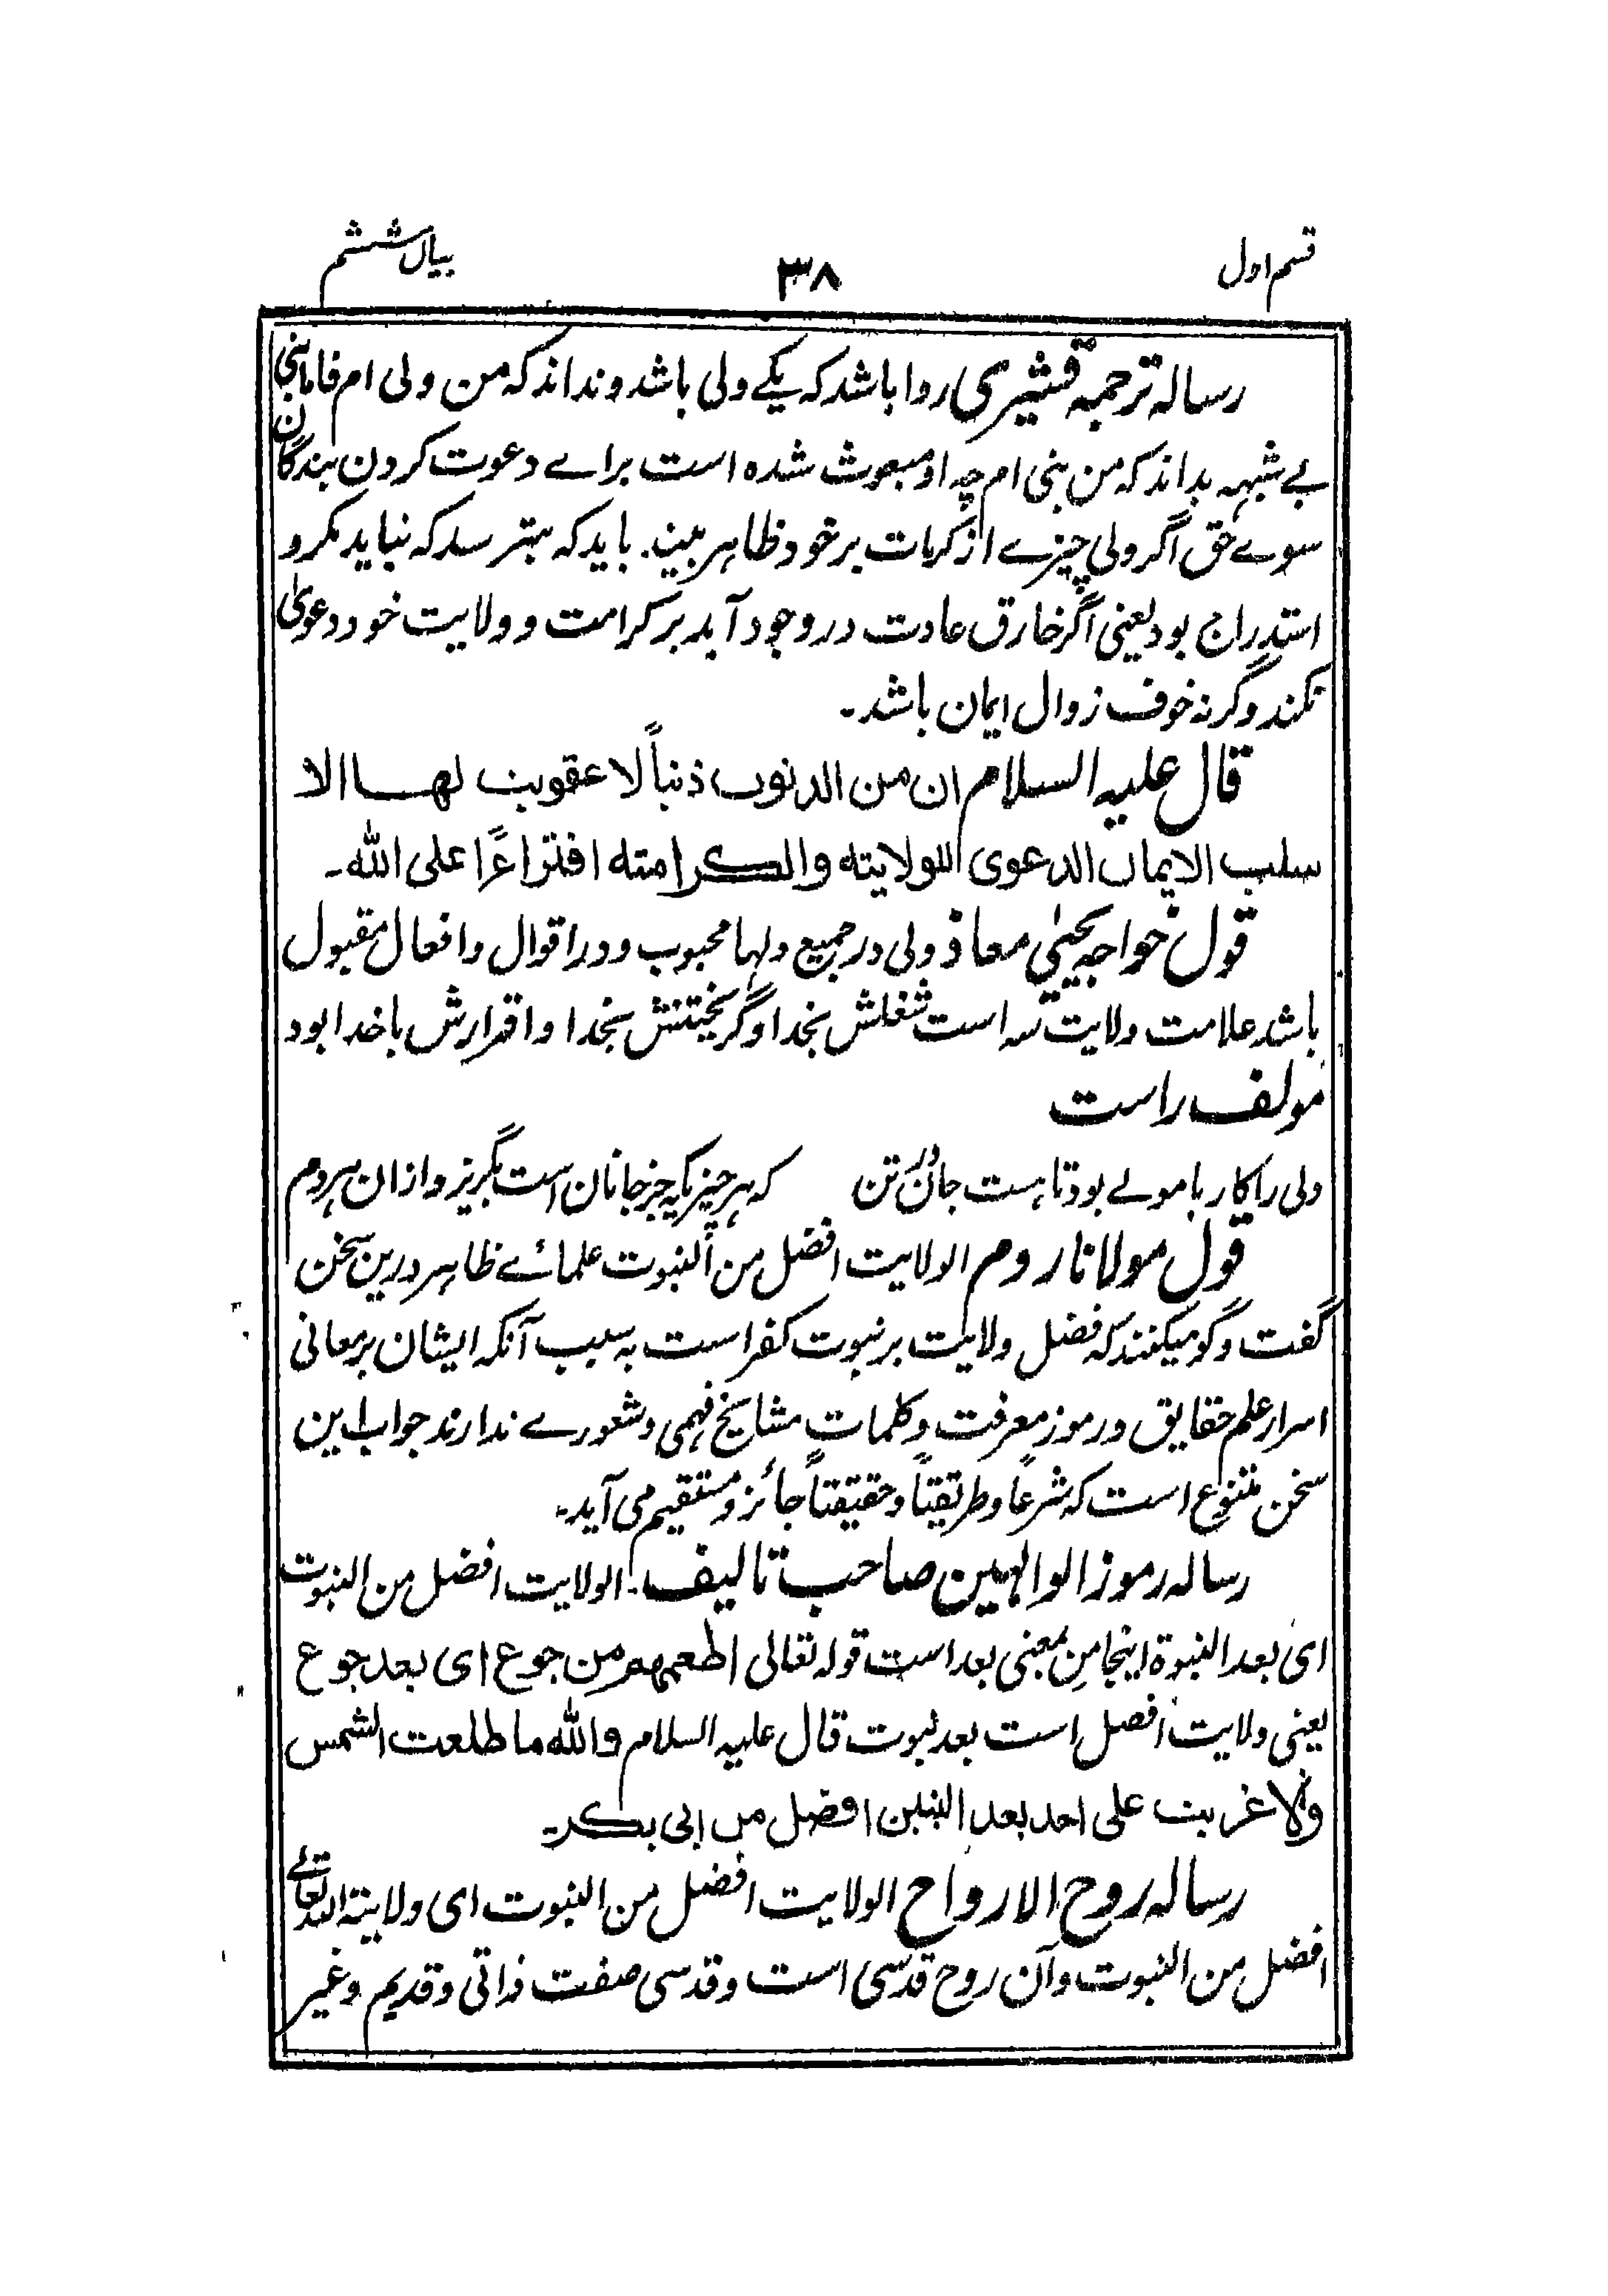 قسم اول
۳۸
بیان ششم
رساله ترجمه قشیری روا باشد که یکے ولی باشد و نداند که من ولی ام فاما نبی
بے شبہہ بداند که من نبی ام چه او مبعوث شده است براے دعوت کردن بندگان
سوے حق اگر ولی چیزے از کرامات بر خود ظاهر بیند. باید که بترسد که نباید مکر و
استدراج بود یعنی اگر خارق عادت در وجود آید بر کرامت و ولایت خود دعویٰ
نکند وگرنه خوف زوال ایمان باشد۔
قال علیه السلام ان من الذنوب ذنباً لا عقوبت لها الا
سلب الایمان الدعوی اللولایته والکرامته افتراءً علی الله۔
قول خواجه یحییٰ معاذ ولی در جمیع دلها محبوب و در اقوال و افعال مقبول
باشد علامت ولایت سه است شغلش بخدا و گریختنش بخدا و اقرارش با خدا بود
مولف راست
ولی را کار با مولے بود تا هست جان در تن که هر چیزیکه جز جانان است بگریزد ازان هردم
قول مولانا روم الولایت افضل من النبوت علمائے ظاهر درین سخن
گفت و گو میکنند که فضل ولایت بر نبوت کفر است به سبب آنکه ایشان بر معانی
اسرار علم حقایق و رموز معرفت و کلمات مشایخ فهمی و شعورے ندارند جواب این
سخن متنوع است که شرعاً و طریقتاً و حقیقتاً جائز و مستقیم می آید۔
رساله رموز الوالهین صاحب تالیف۔ الولایت افضل من النبوت
ای بعد النبوة اینجا مِن بمعنی بعد است قوله تعالی اطعمهم من جوع ای بعد جوع
یعنی ولایت افضل است بعد نبوت قال علیه السلام والله ما طلعت الشمس
ولا غربت علی احد بعد النبین افضل من ابی بکر۔
رساله روح الارواح الولایت افضل من النبوت ای ولایته الله تعالے
افضل من النبوت و آن روح قدسی است و قدسی صفت ذاتی و قدیم و غیر